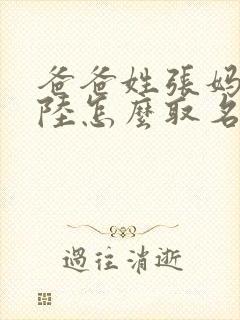 爸爸姓張媽
陸怎麼取名
過往消逝